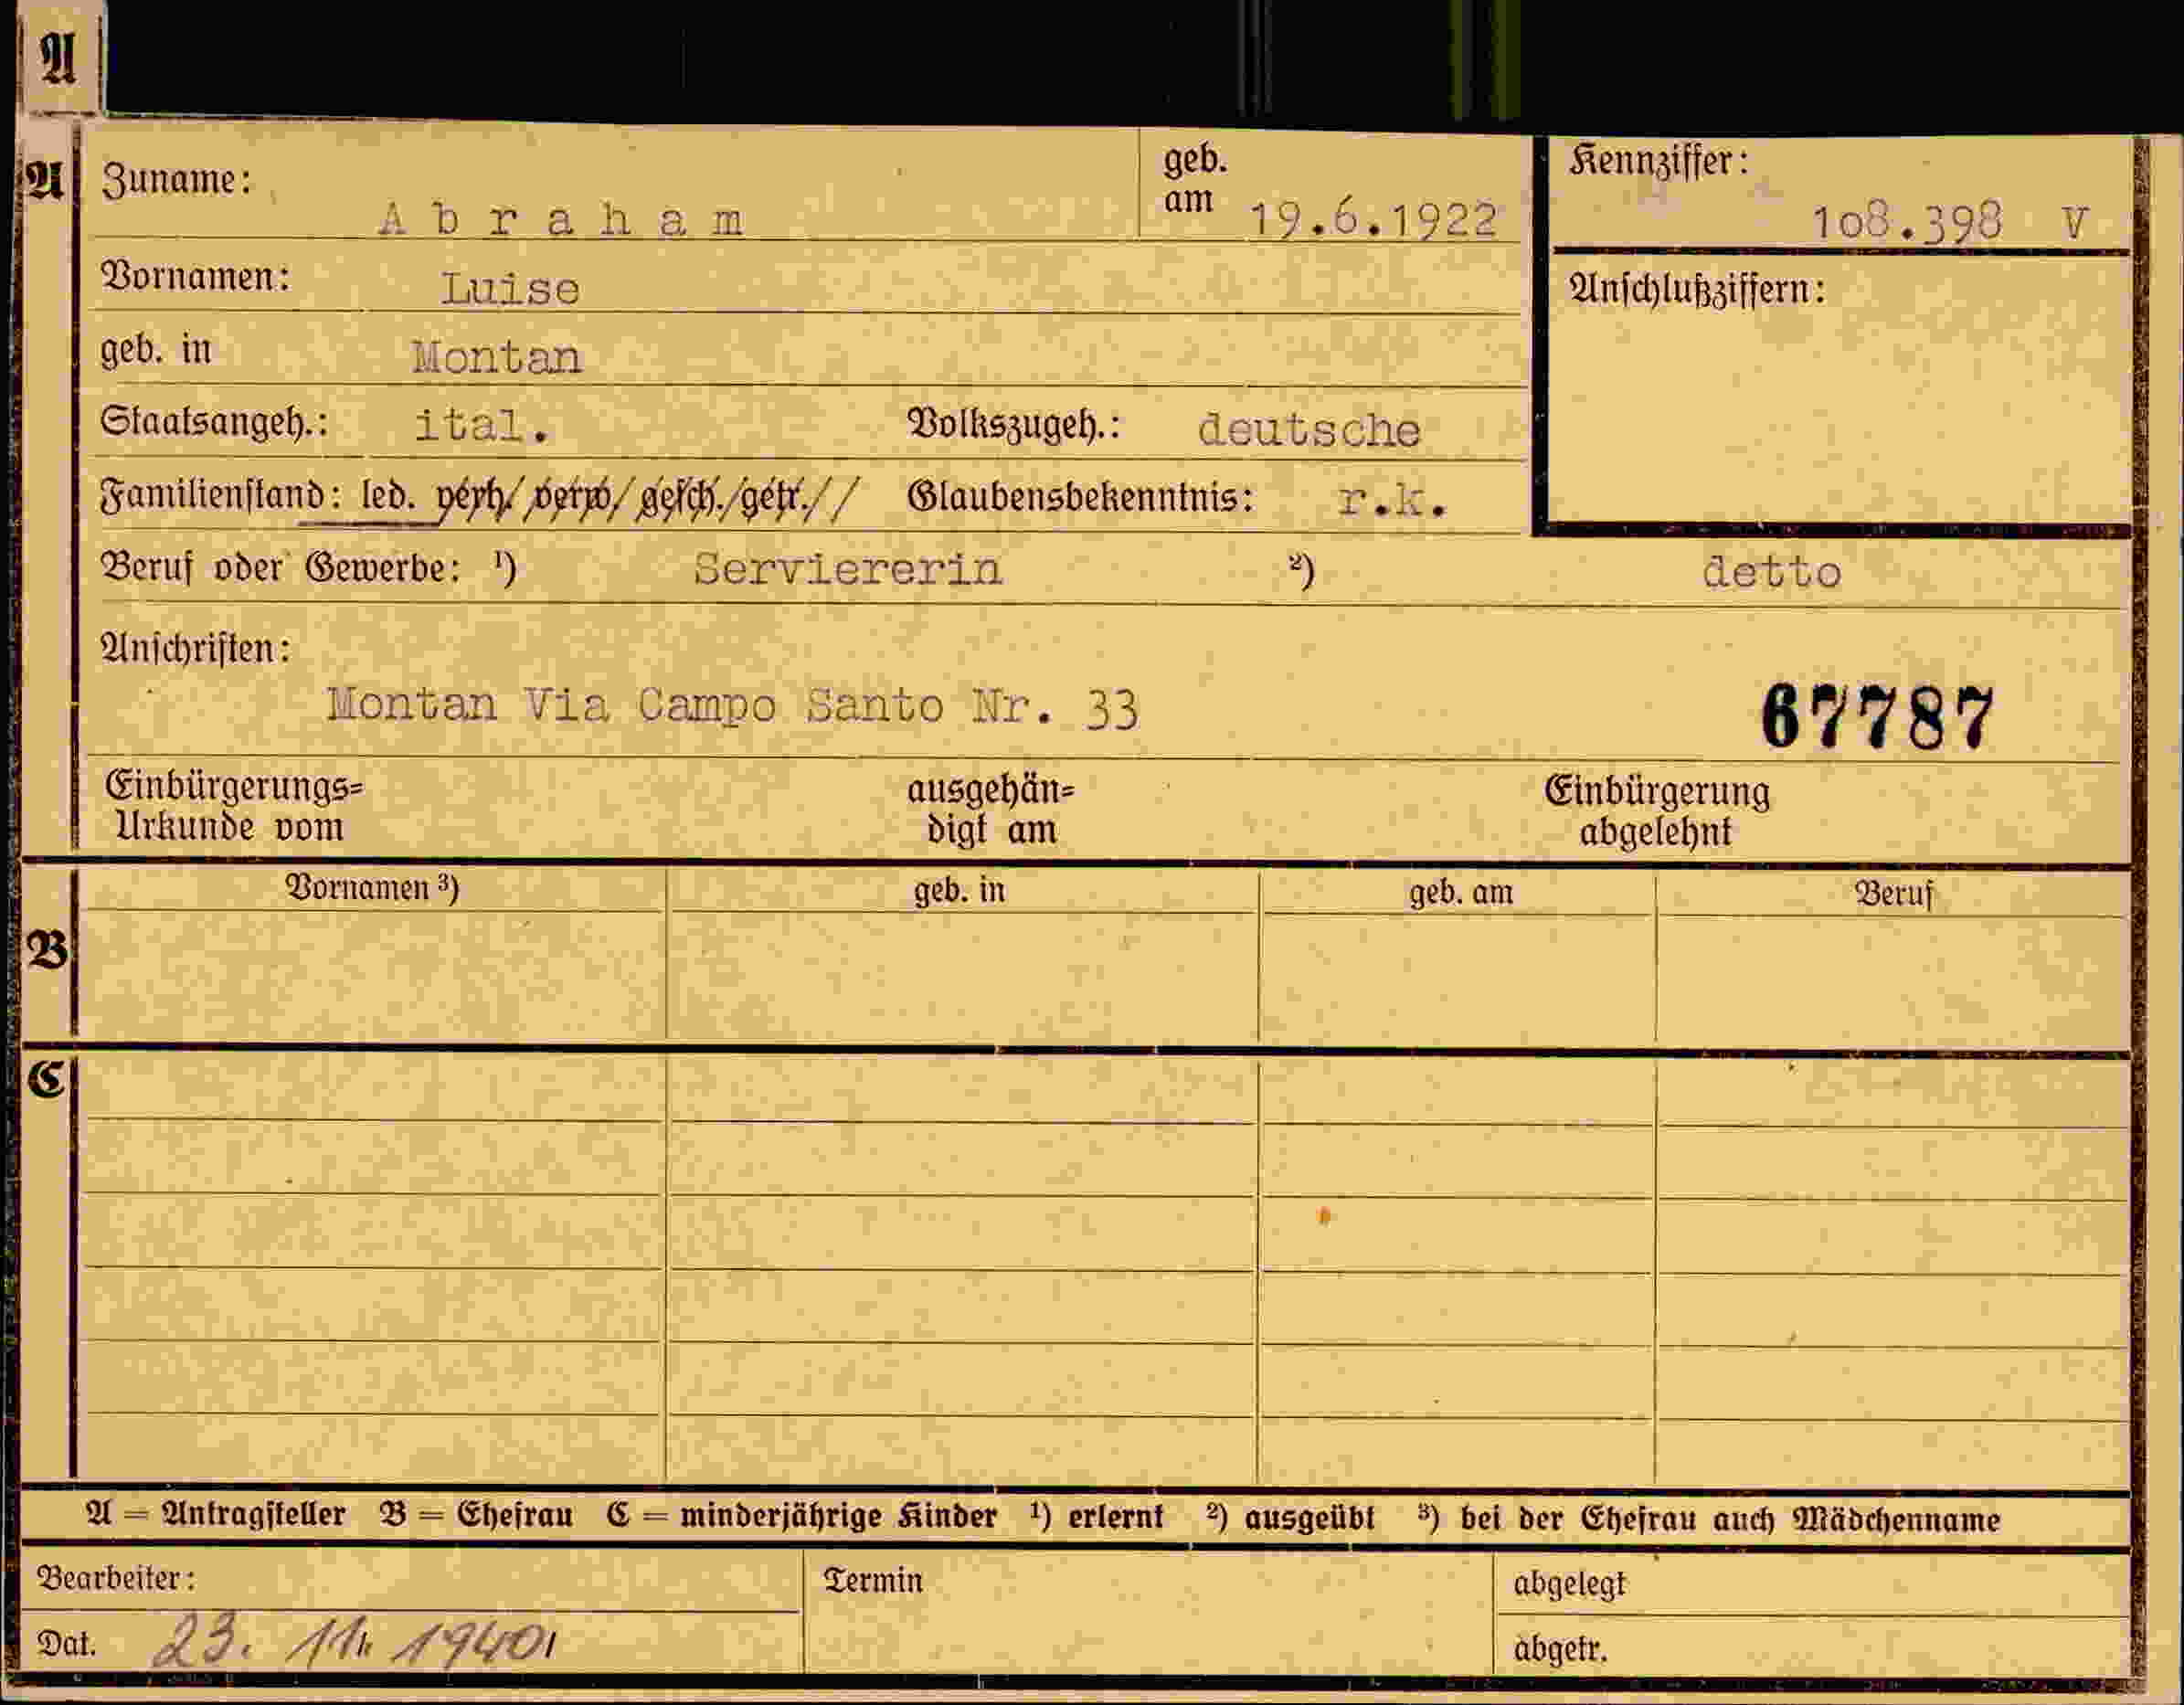 A
A
Zuname: Abraham geb. am 19.6.1922
Kennziffer: 108.398 V
Vornamen: Luise
Anschlußziffern:
geb. in Montan
Staatsangeh.: ital. Volkszugeh.: deutsche
Familienstand: led. verh/ verw/ gesch./getr.// Glaubensbekenntnis: r.k.
Beruf oder Gewerbe: ¹) Serviererin ²) detto
Anschriften:
Montan Via Campo Santo Nr. 33
67787
Einbürgerungs= ausgehän= Einbürgerung
Urkunde vom digt am abgelehnt
Vornamen ³) geb. in geb. am Beruf
B
C
A = Antragsteller B = Ehefrau C = minderjährige Kinder ¹) erlernt ²) ausgeübt ³) bei der Ehefrau auch Mädchenname
Bearbeiter: Termin abgelegt
Dat. 23. 11. 1940 abgetr.